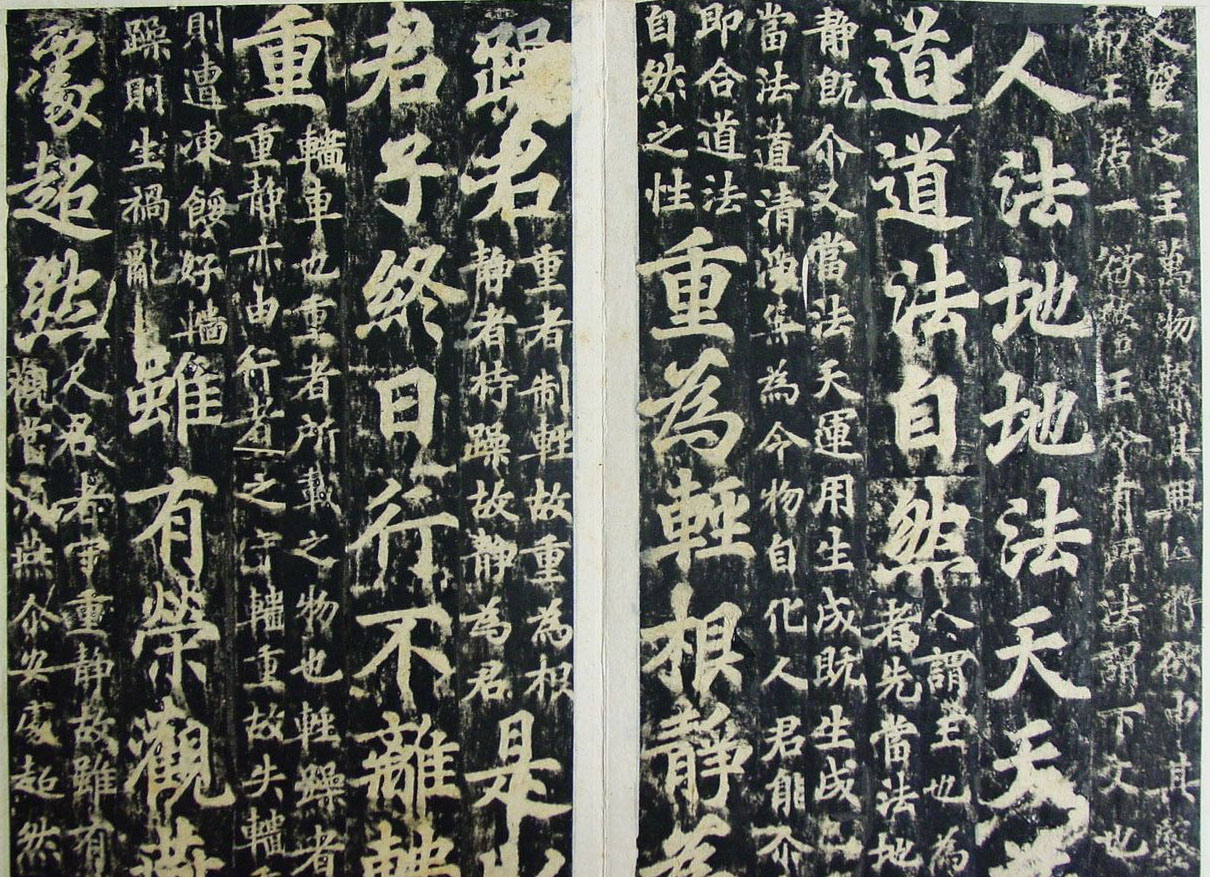 人靈之主萬物繫其興亡將欲申其鑒
而王居一欲警王令有所法謂下文也
人法地地法天天法
道道法自然
人謂王也為
者先當法地
静既尒又當法天運用生成既生成已
當法道清净無為令物自化人君能尒
即合道法
自然之性
重為輕根静為
躁君
重者制輕故重為根
静者持躁故静為君
是以
君子終日行不離輜
重
輜車也重者所載之物也輕躁者
重静亦由行者之守輜重故失輜重
則遭凍餒好輜
躁則生禍亂
雖有榮觀燕
處超然
人君者守重静故雖有
觀當須燕尒安處超然